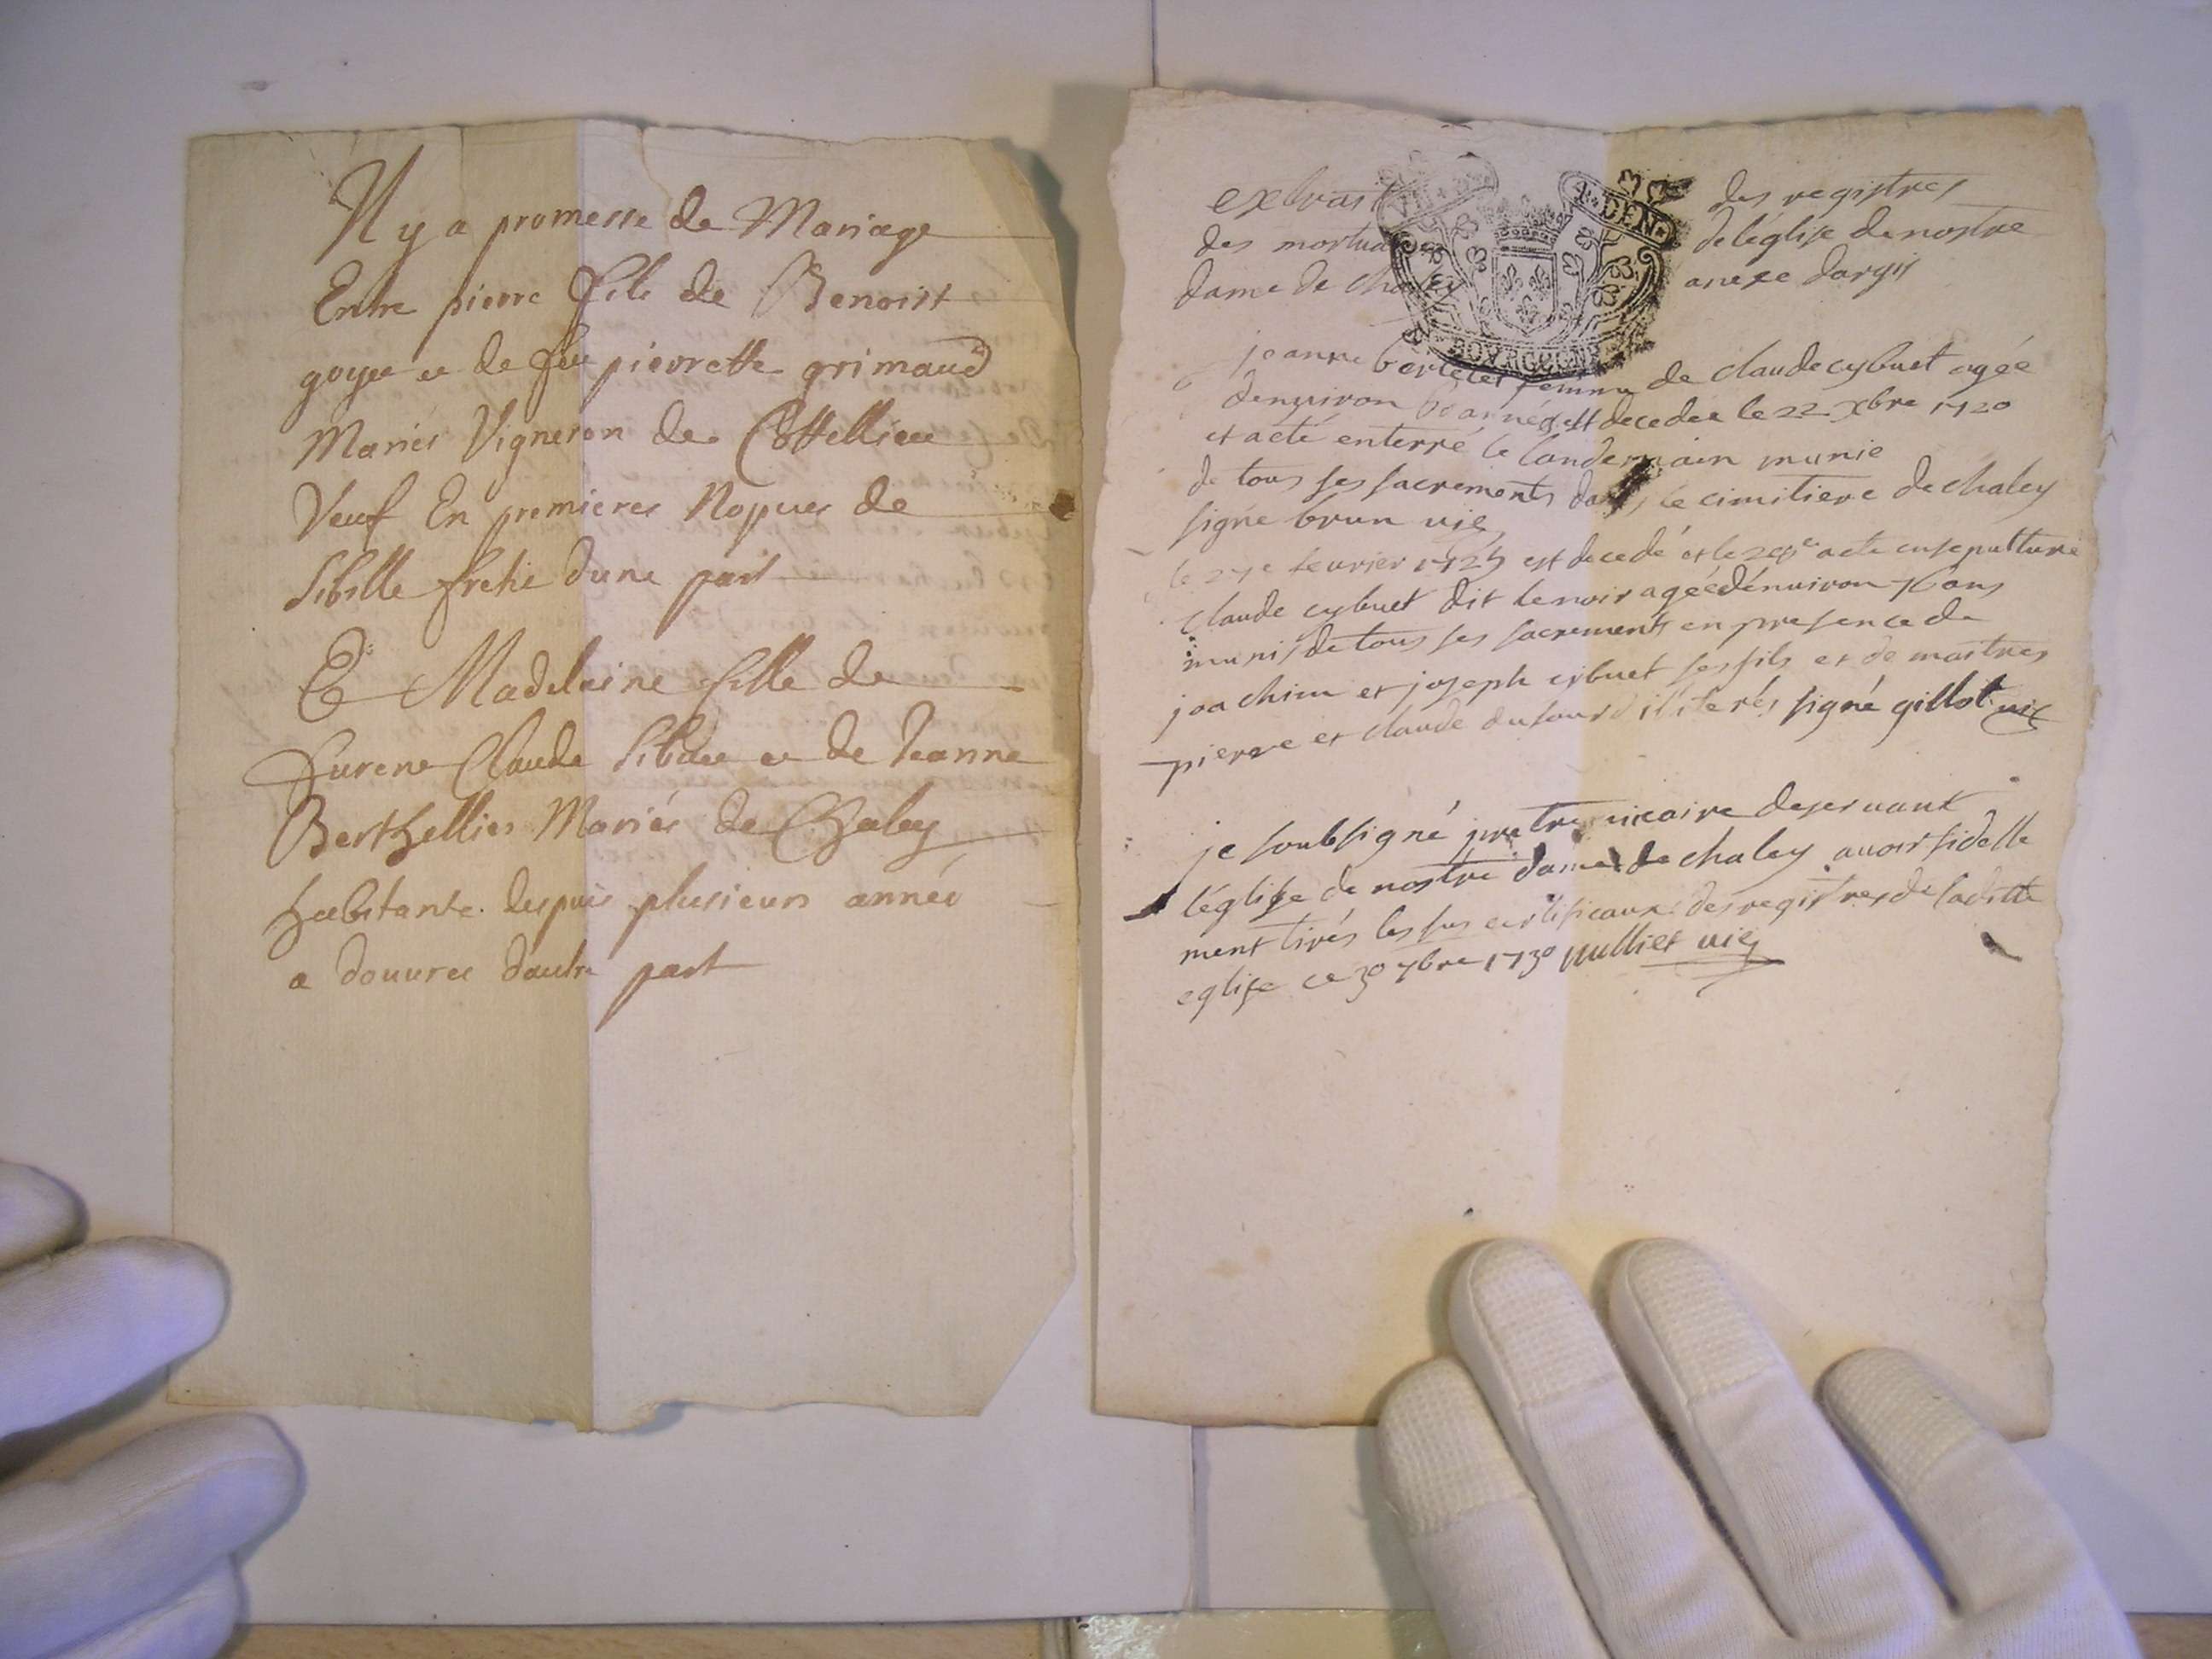 Il y a promesse de Mariage
Entre pierre fils de Benoist
goyet et de feu pierrette grimaud
Mariés Vigneron de Cottellieu
Veuf En premieres Nopces de
Sibille fretie dune part
Et Madelaine fille de
furent Claude Sibuet et de Jeanne
Berthellier Mariés de Chaley
habitante despuis plusieurs année
a douvres dautre part
extrait des registres
des mortuaires de léglise de nostre
dame de chaley anexe dargis
A. DEN.
BOURGOGNE
jeanne bertelet femme de claude cybuet agée
denuiron années est decedée le 22 xbre 1720
et a eté enterré le landemain munie
de tous ses sacrements dans le cimitiere de chaley
signé brun vic
le 27e feurier 1725 est decedé et le 28e a ete ensepulturé
claude cybuet dit lenoir ageé dénuiron 76 ans
munis de tous ses sacrements en presence de
joachim et joseph cybuet ses fils et de maitres
pierre et claude dufour illiterés signé gillot vic
je soubsigné pretre vicaire deseruant
léglise de nostre dame de chaley auoir fidelle
ment tirés les sus certificaux des registres de laditte
eglise ce 30 7bre 1730 jullliet vic